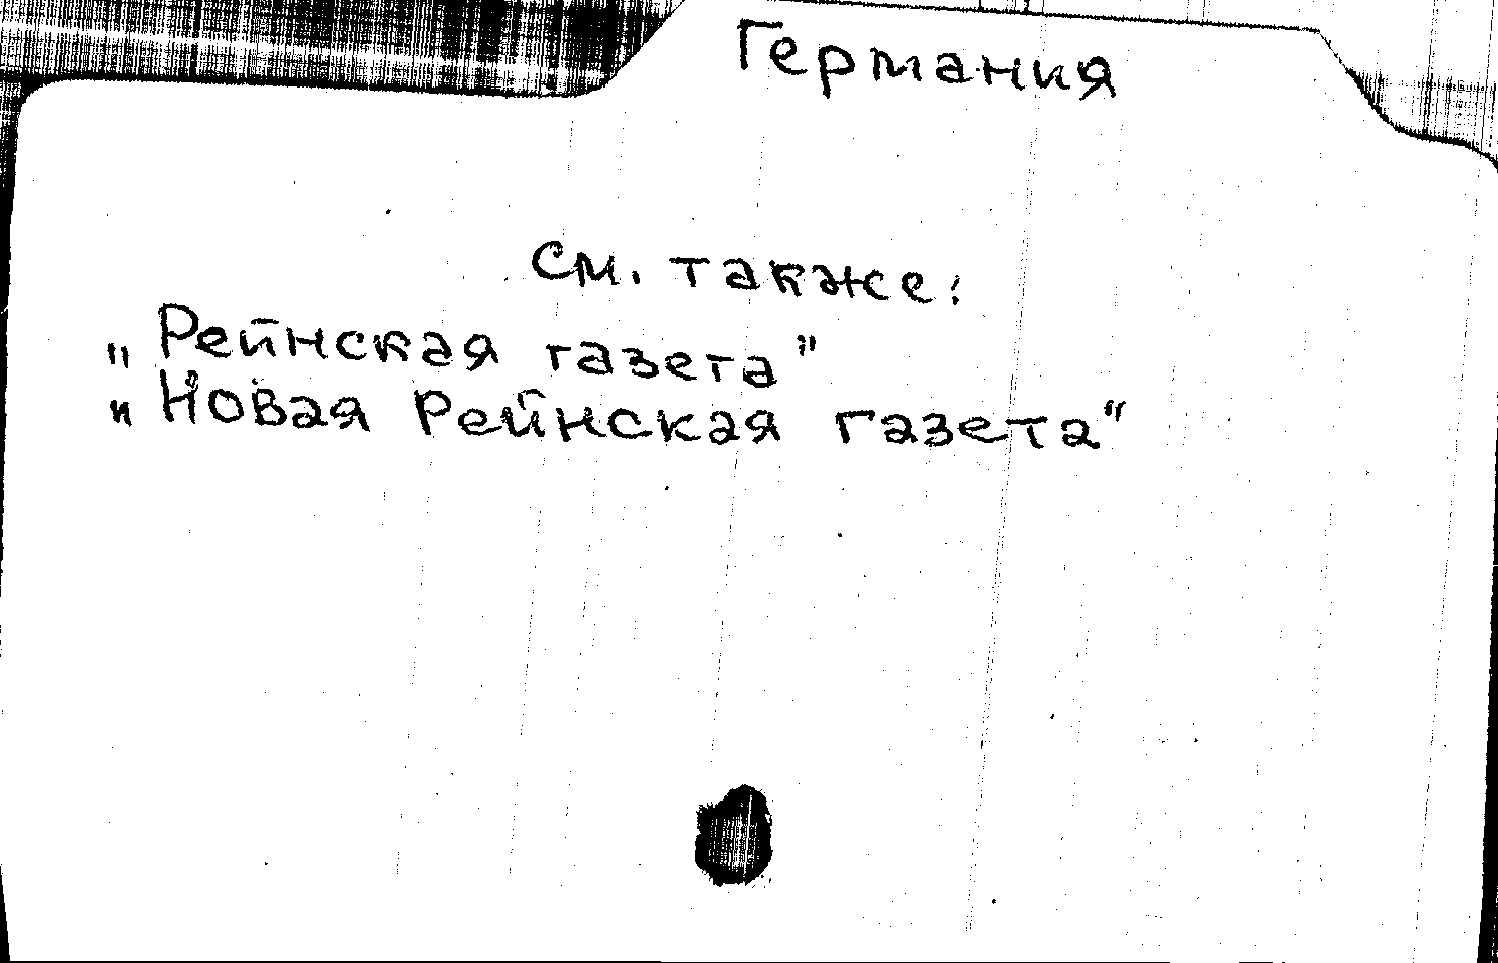 Германия
См. также:
„Рейнская газета”
„Новая Рейнская газета”